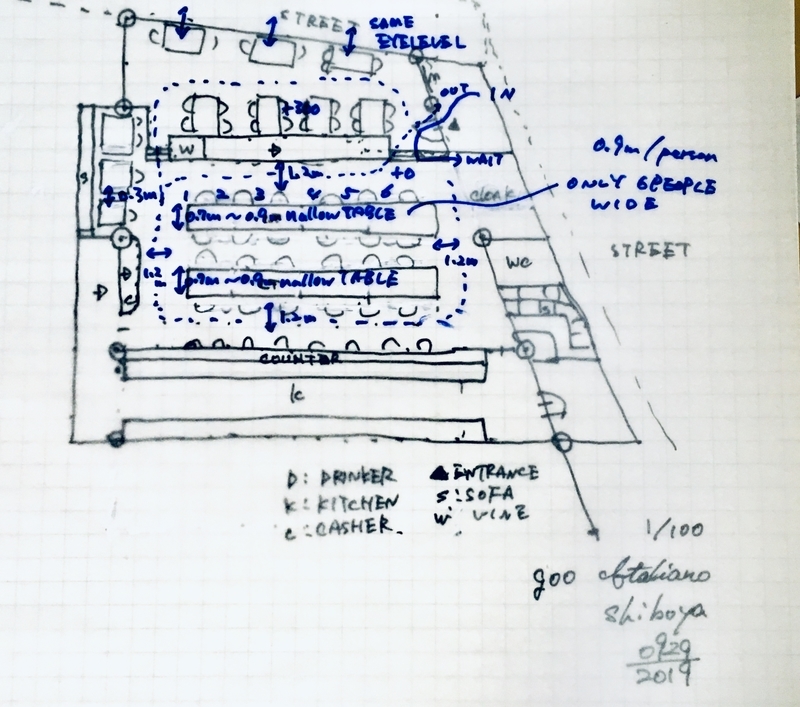 STREET
SAME
EYELEVEL
OUT
IN
+300
W
D
WAIT
1.2m
+0
0.9m/person
ONLY 6PEOPLE
WIDE
cloak
S
0.3m
1 2 3 4 5 6
0.7m~0.9m nallow TABLE
STREET
WC
1.2
1.2m
0.7m~0.9m nallow TABLE
D
C
S
1.2m
COUNTER
K
D: DRINKER
▲ENTRANCE
K: KITCHEN
S: SOFA
C: CASHER.
W: VINE
1/100
goo Italiano
Shiboya
0929
2019